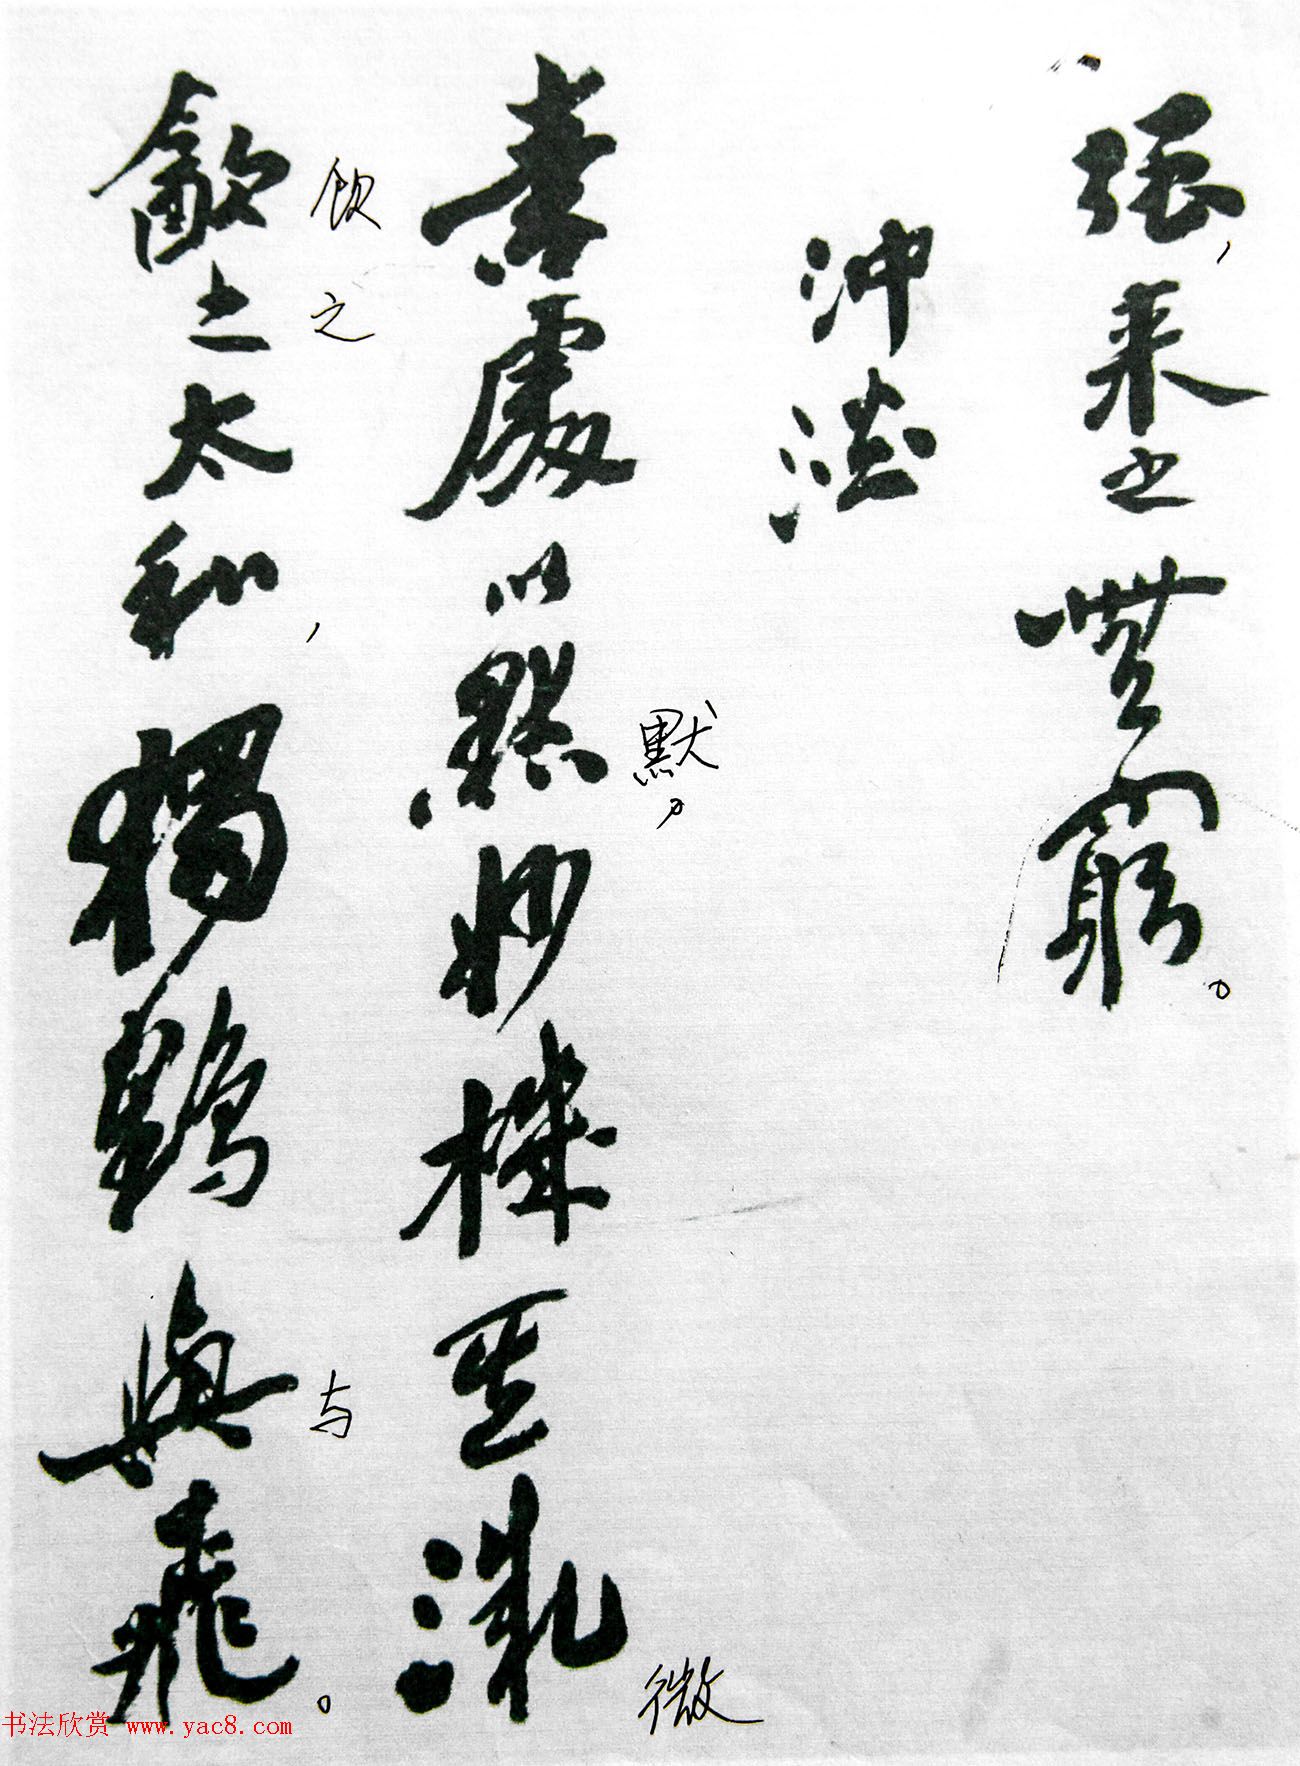 强，来之無窮。
沖澹
素處以默妙機其微
默，
微
飲之太和，獨鶴與飛。
饮之
与
书法欣赏 www.yac8.com